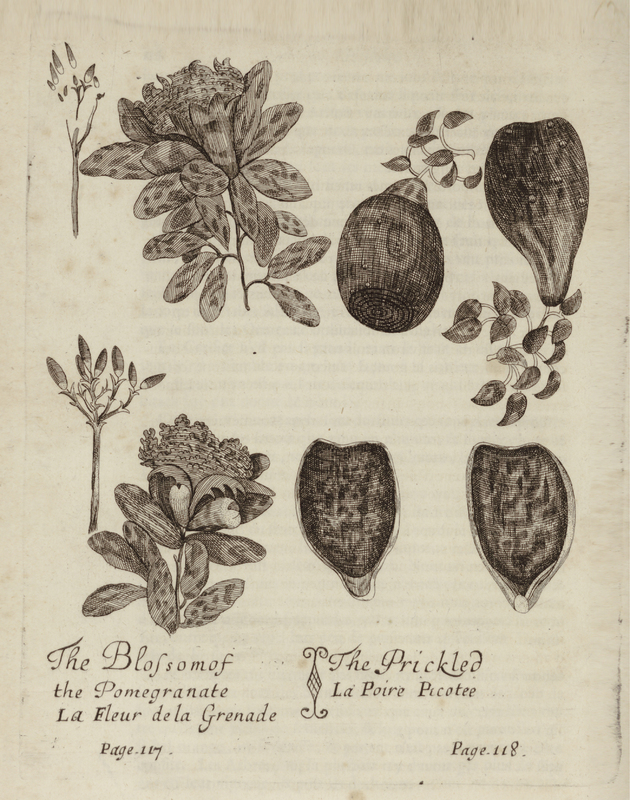 The Bloſsom of
the Pomegranate
La Fleur de la Grenade
Page.117.
The Prickled
La Poire Picotee
Page.118.